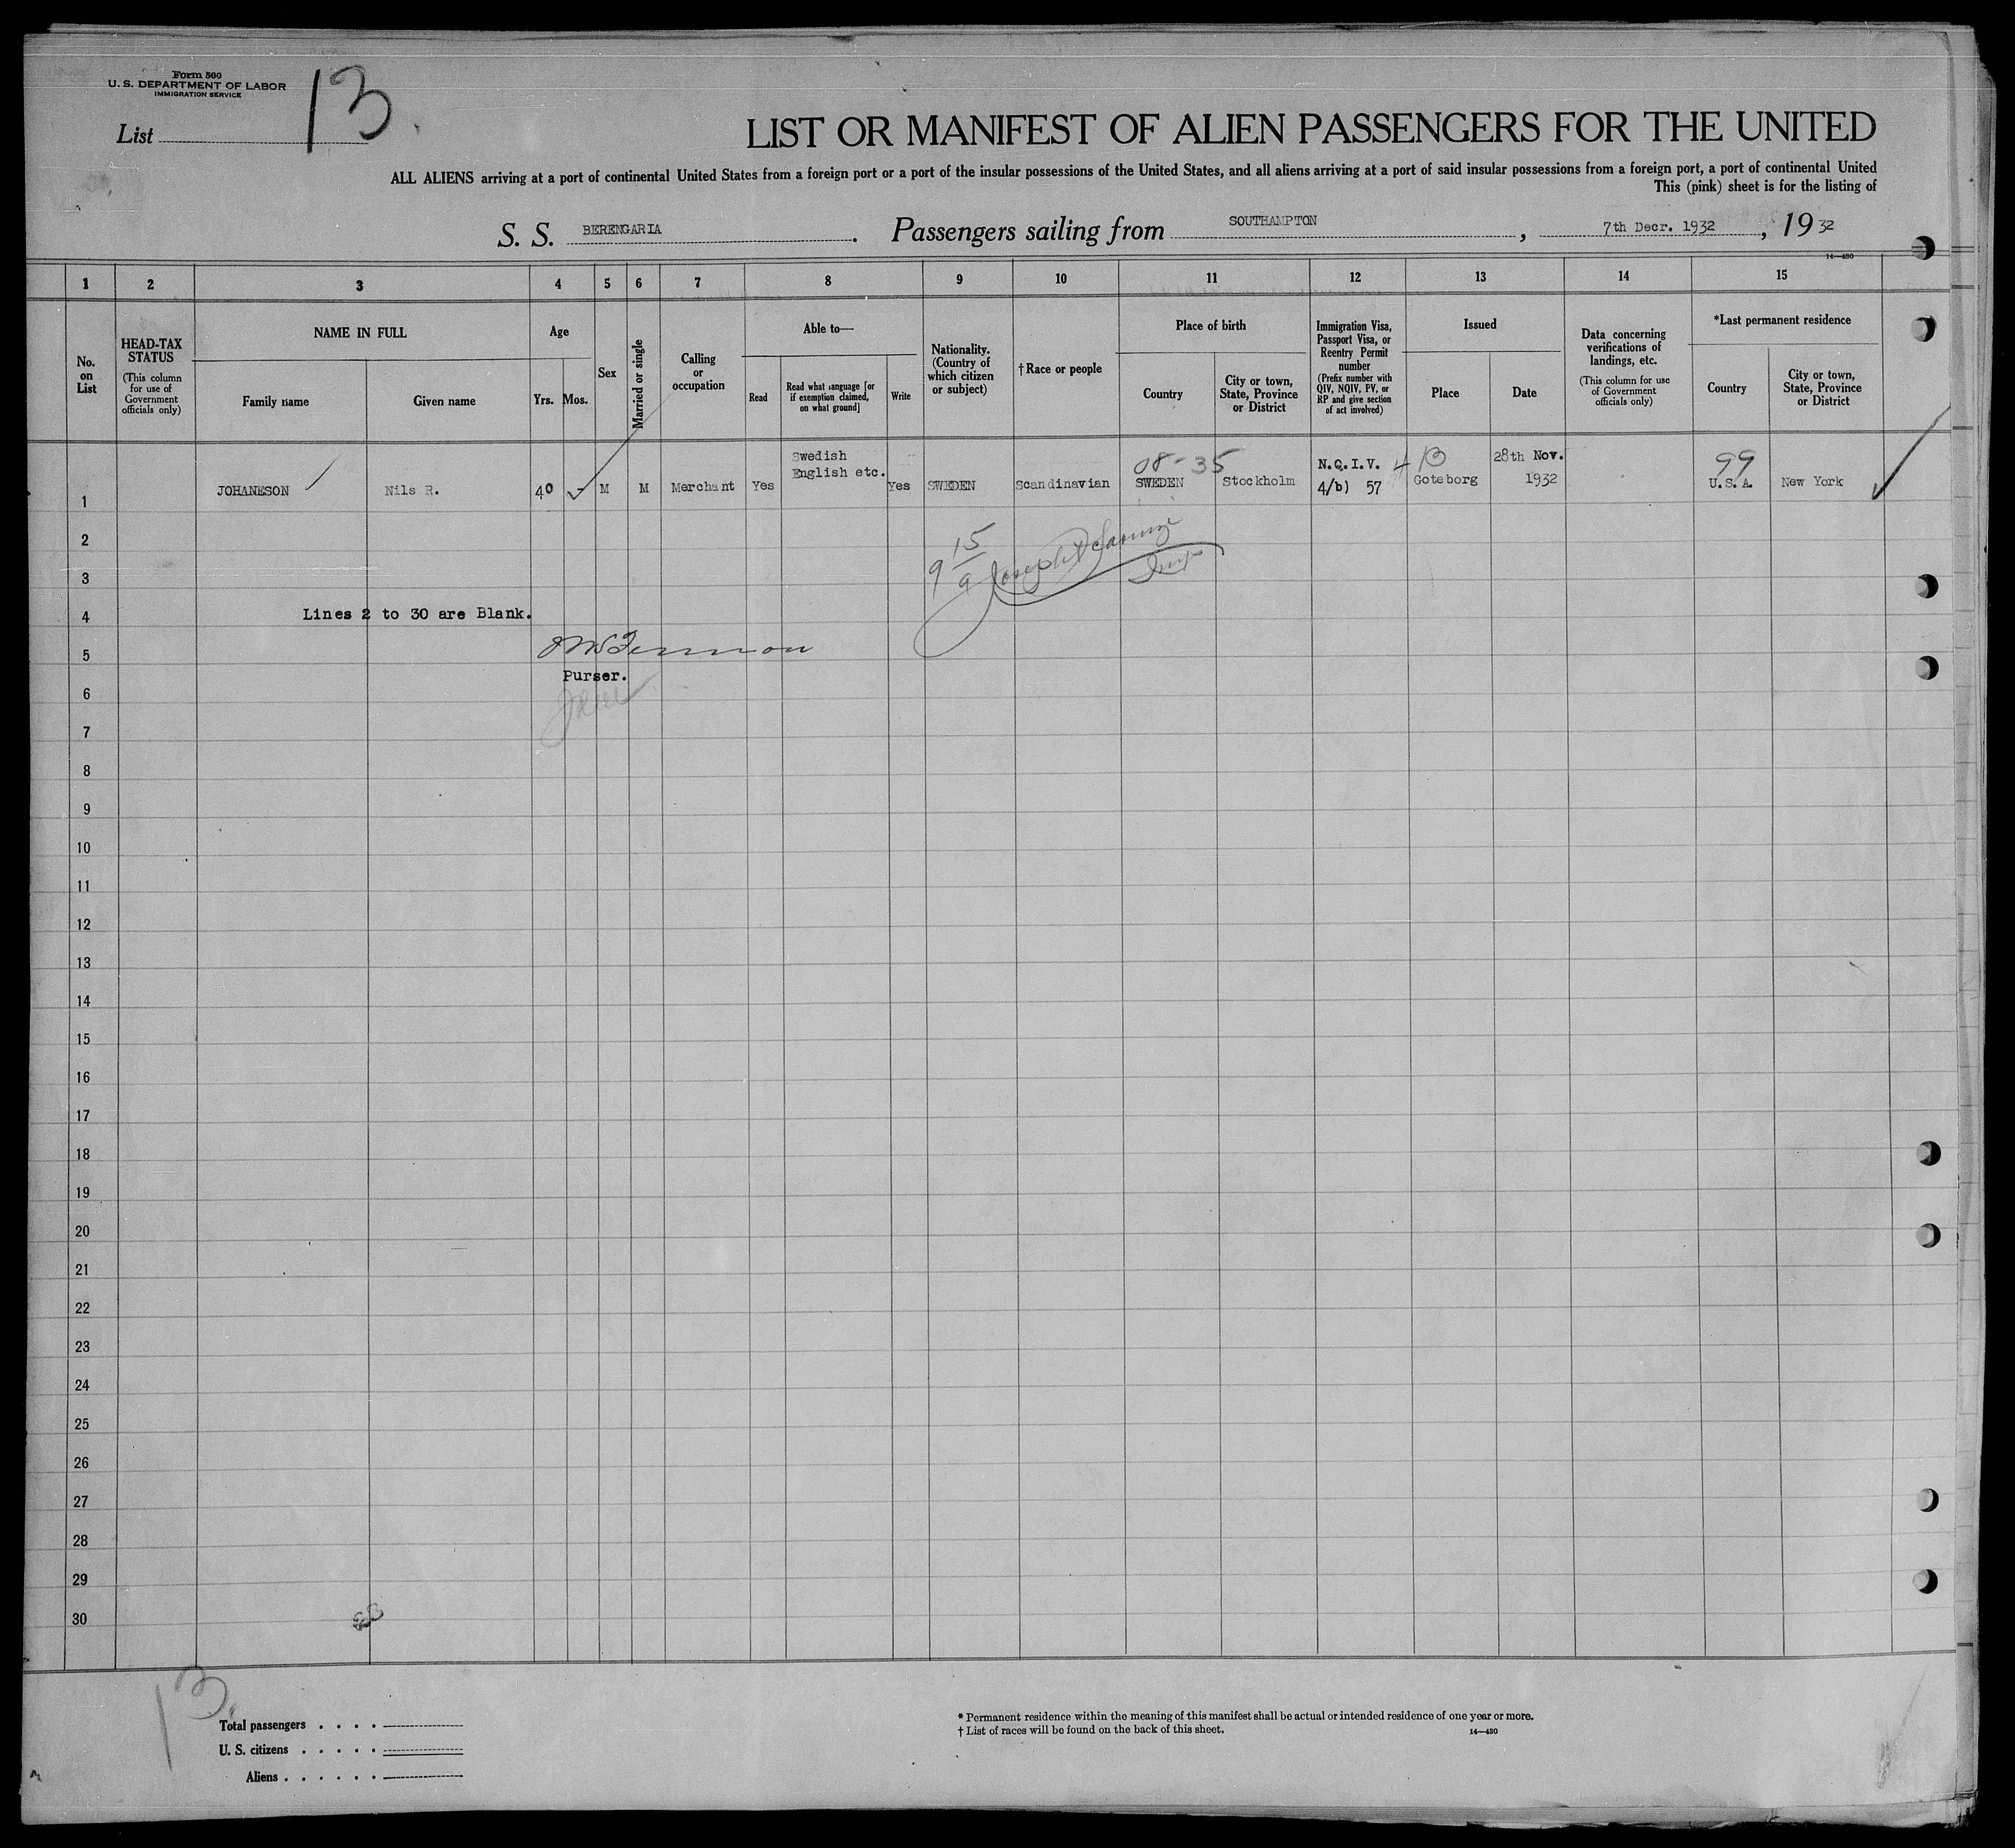 Form 500
U. S. DEPARTMENT OF LABOR
IMMIGRATION SERVICE
List 13
LIST OR MANIFEST OF ALIEN PASSENGERS FOR THE UNITED
ALL ALIENS arriving at a port of continental United States from a foreign port or a port of the insular possessions of the United States, and all aliens arriving at a port of said insular possessions from a foreign port, a port of continental United
This (pink) sheet is for the listing of
S. S. BERENGARIA. Passengers sailing from SOUTHAMPTON, 7th Decr. 1932, 19 32
14—430
1 2 3 4 5 6 7 8 9 10 11 12 13 14 15
No. on List
HEAD-TAX STATUS
(This column for use of Government officials only)
NAME IN FULL
Family name
Given name
Age
Yrs.
Mos.
Sex
Married or single
Calling or occupation
Able to—
Read
Read what language [or if exemption claimed, on what ground]
Write
Nationality. (Country of which citizen or subject)
†Race or people
Place of birth
Country
City or town, State, Province or District
Immigration Visa, Passport Visa, or Reentry Permit number
(Prefix number with QIV, NQIV, PV, or RP and give section of act involved)
Issued
Place
Date
Data concerning verifications of landings, etc.
(This column for use of Government officials only)
*Last permanent residence
Country
City or town, State, Province or District
08-35
99
1 JOHANESON Nils R. 40 M M Merchant Yes Swedish English etc. Yes SWEDEN Scandinavian SWEDEN Stockholm N.Q.I.V. 4/b) 57 Goteborg 28th Nov. 1932 U.S.A. New York
2
3
4 Lines 2 to 30 are Blank.
5
Purser.
6
7
8
9
10
11
12
13
14
15
16
17
18
19
20
21
22
23
24
25
26
27
28
29
30
13
Total passengers
U. S. citizens
Aliens
* Permanent residence within the meaning of this manifest shall be actual or intended residence of one year or more.
† List of races will be found on the back of this sheet.
14—430